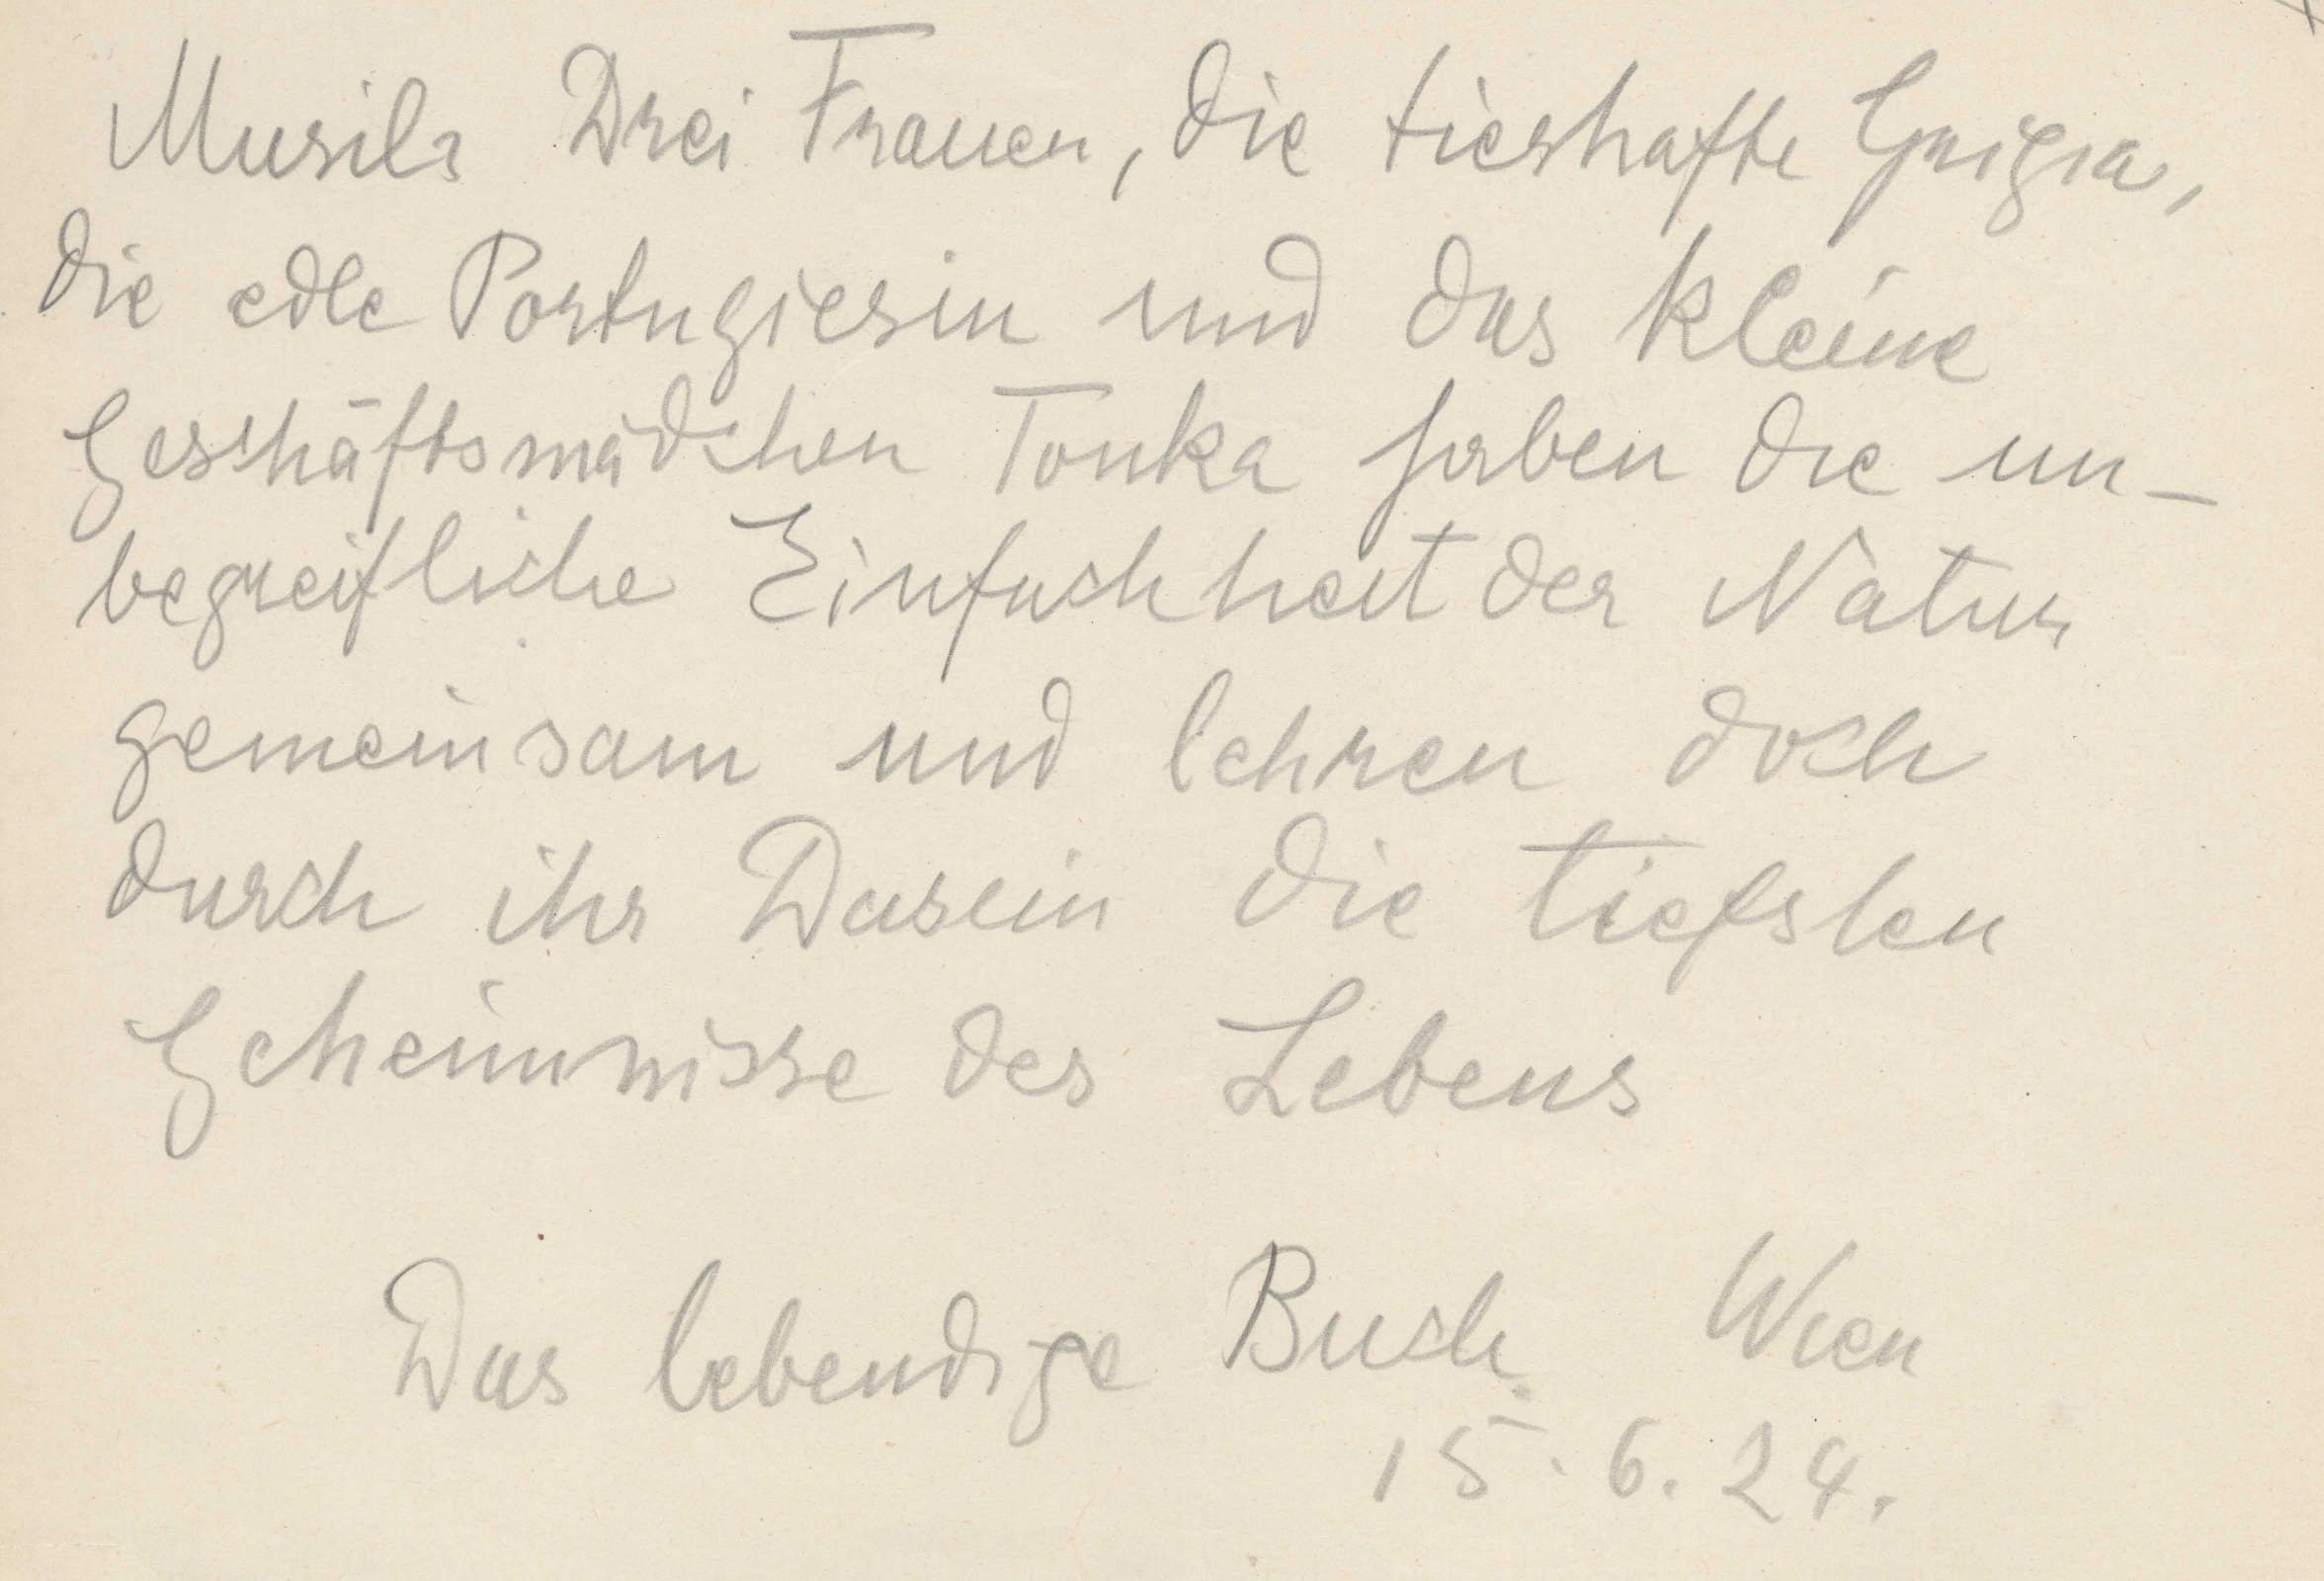 Musils Drei Frauen, die tierhafte Grigia,
die edle Portugiesin und das kleine
Geschäftsmädchen Tonka haben die un-
begreifliche Einfachheit der Natur
gemeinsam und lehren doch
durch ihr Dasein die tiefsten
Geheimnisse des Lebens
Das lebendige Buch. Wien
15. 6. 24.